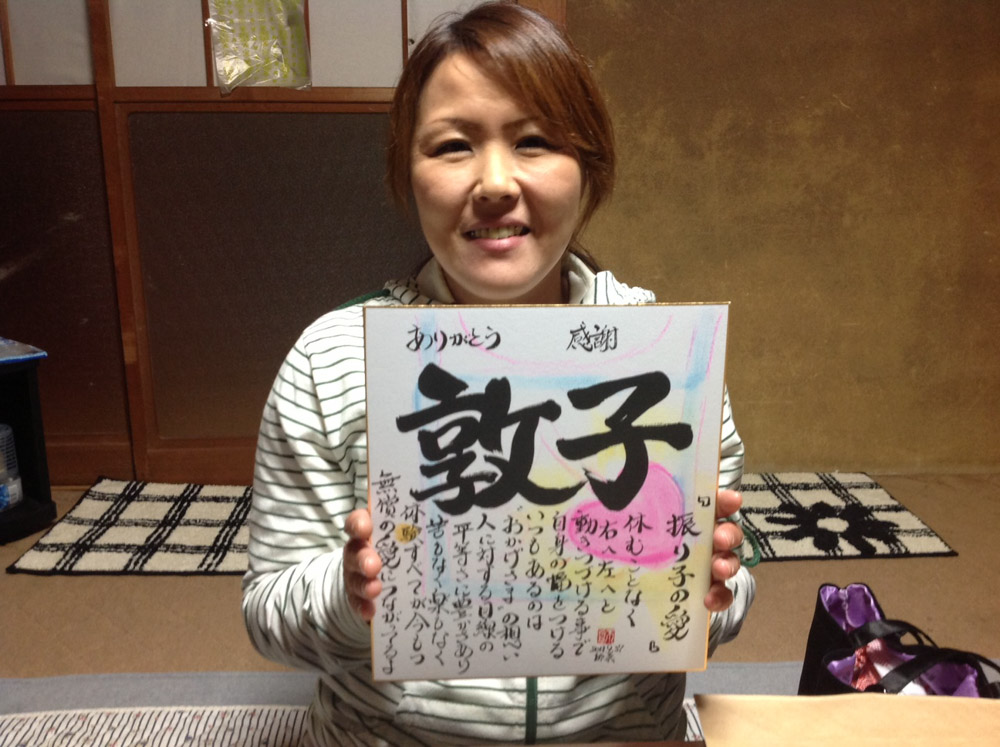 ありがとう 感謝
敦子
「振り子の愛」
休むことなく
右へ左へと
動きつづける事で
自身の節をつける
いつもあるのは
"おかげさま"の想い
人に対する目線の
平等さに豊かさあり
もなく もなく
すべてが今もつ
無償の愛につながってるよ